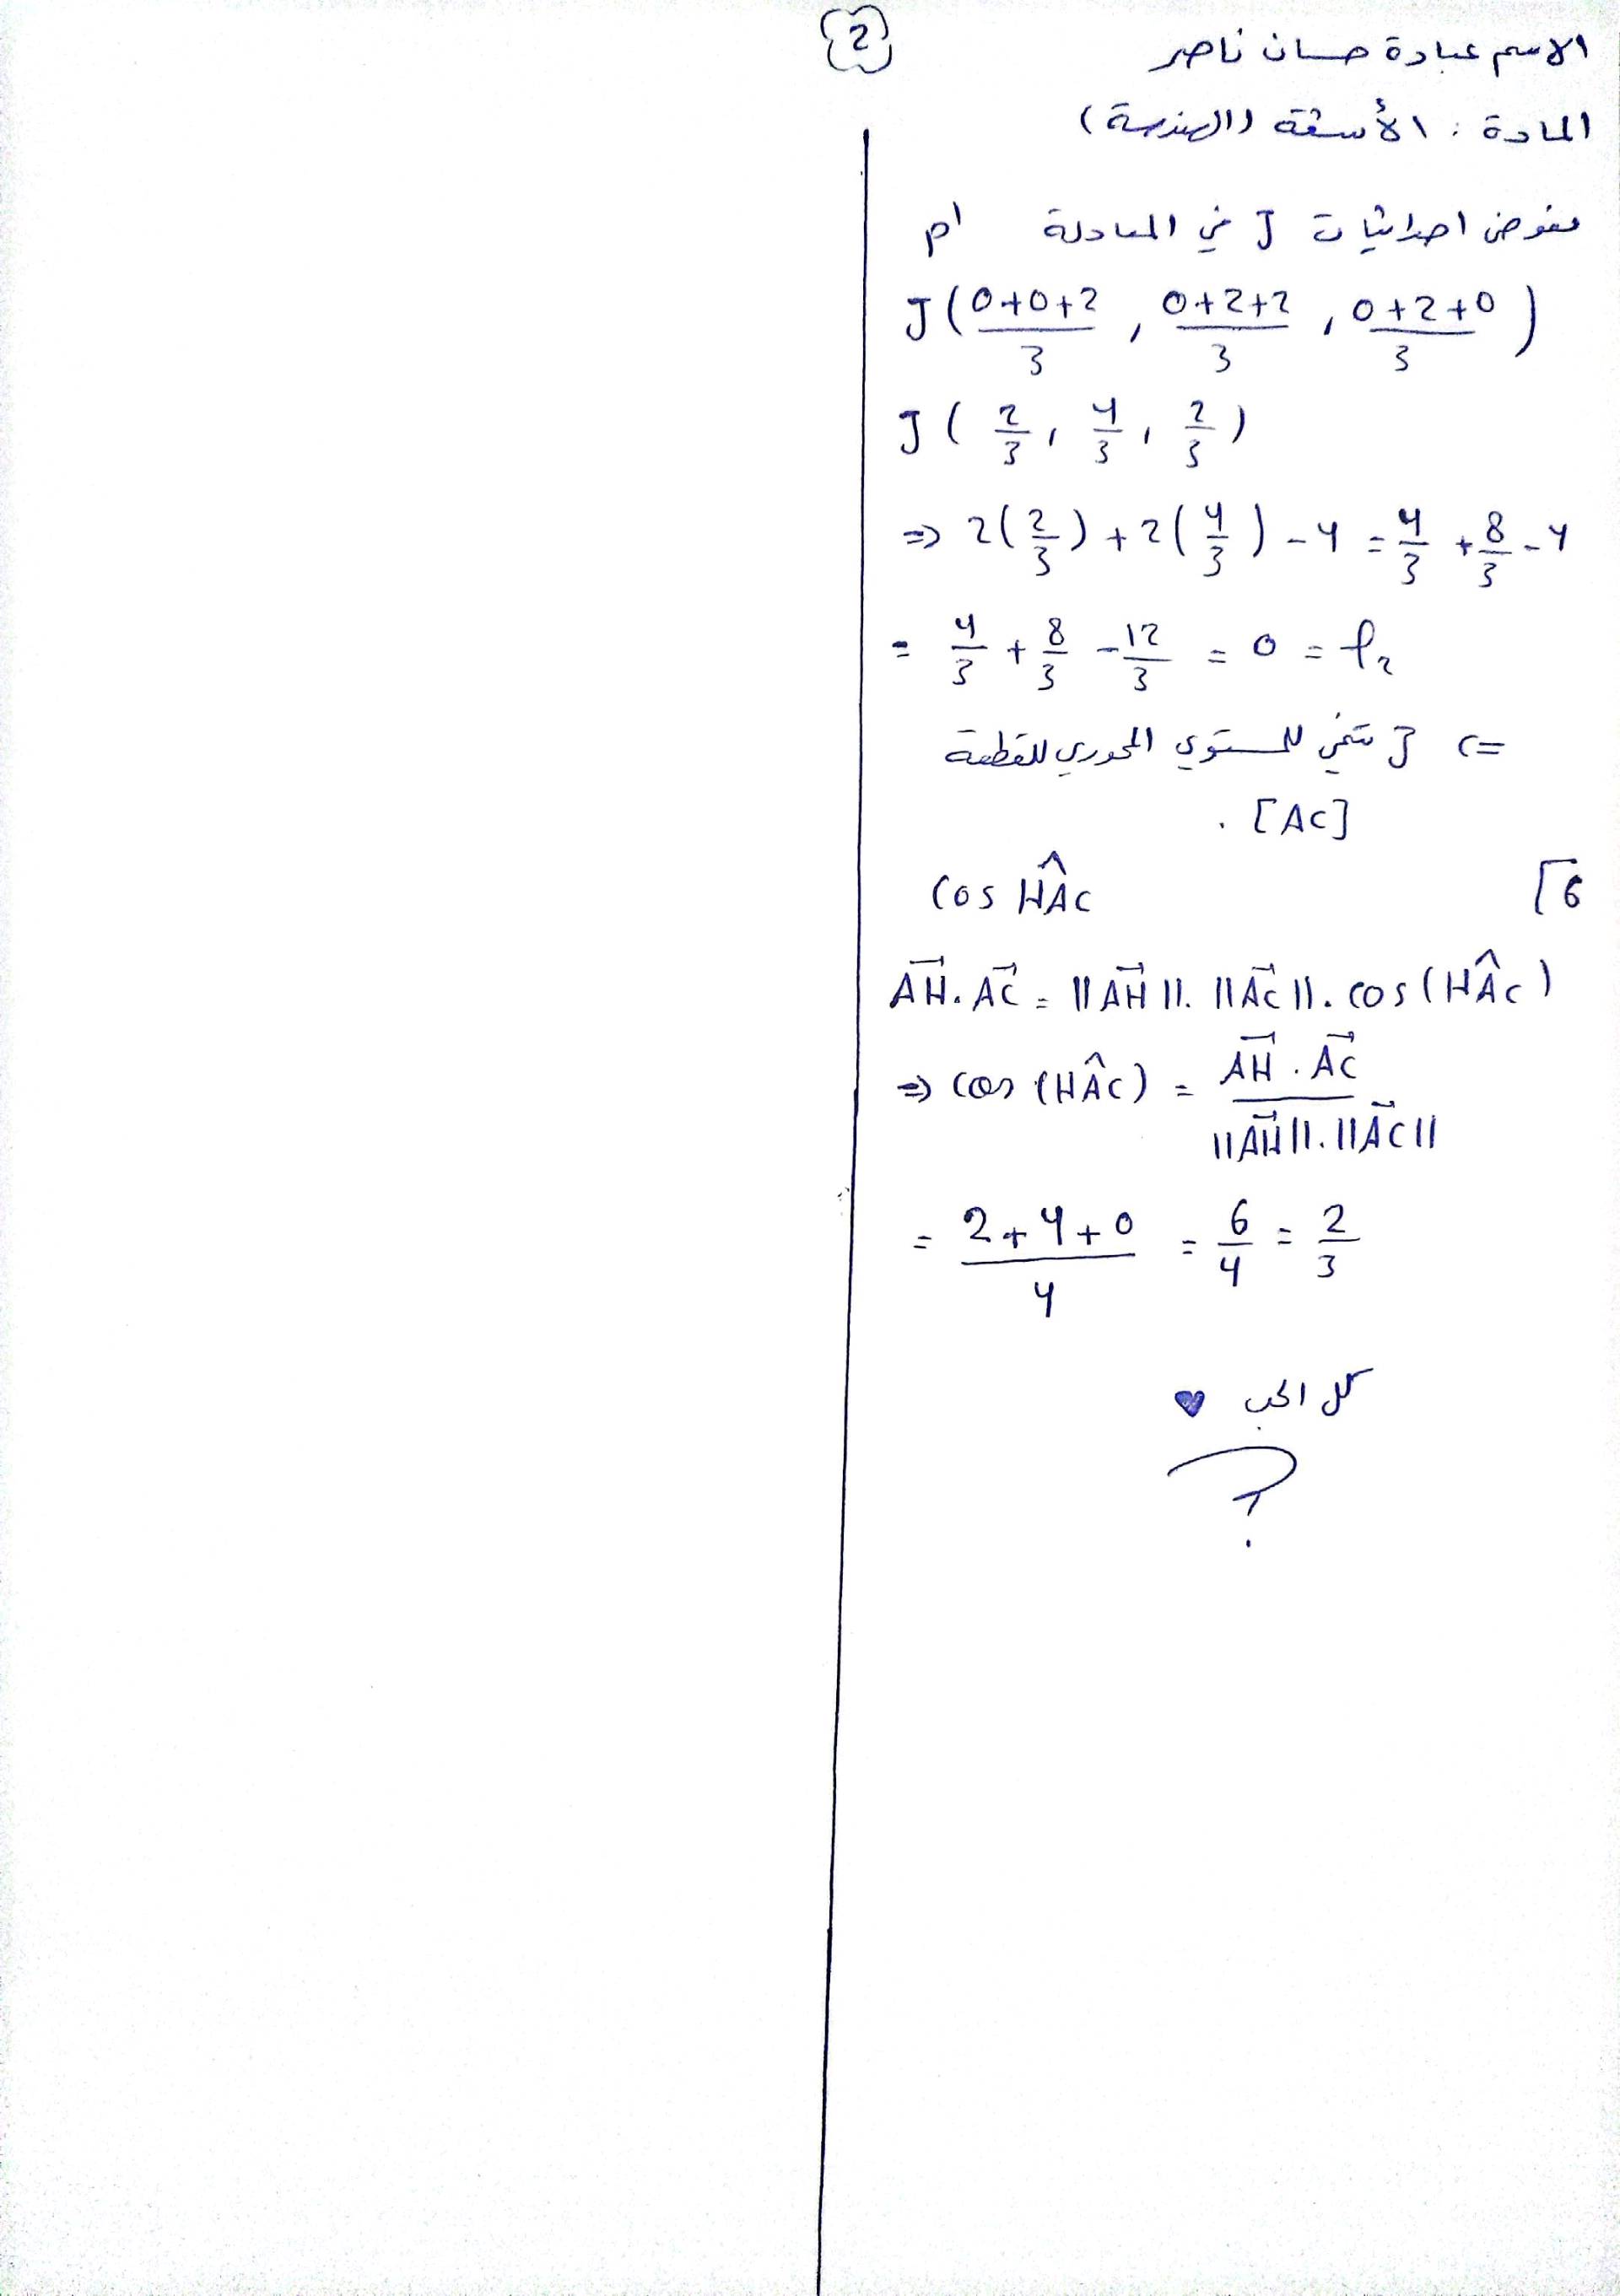 2
الاسم عبادة حسان ناصر
المادة : الأسئلة (الهندسة)
نعوض احداثيات J في المعادلة P'
J ( (0+0+2)/3 , (0+2+2)/3 , (0+2+0)/3 )
J ( 2/3 , 4/3 , 2/3 )
⇒ 2(2/3) + 2(4/3) - 4 = 4/3 + 8/3 - 4
= 4/3 + 8/3 - 12/3 = 0 = l₂
⇐ J تنتمي للمستوي المحوري للقطعة
[AC] .
6 cos HÂC
AH⃗ . AC⃗ = ||AH⃗|| . ||AC⃗|| . cos (HÂC)
⇒ cos (HÂC) = (AH⃗ . AC⃗) / (||AH⃗|| . ||AC⃗||)
= (2+4+0)/4 = 6/4 = 2/3
كل الحب ♥
?